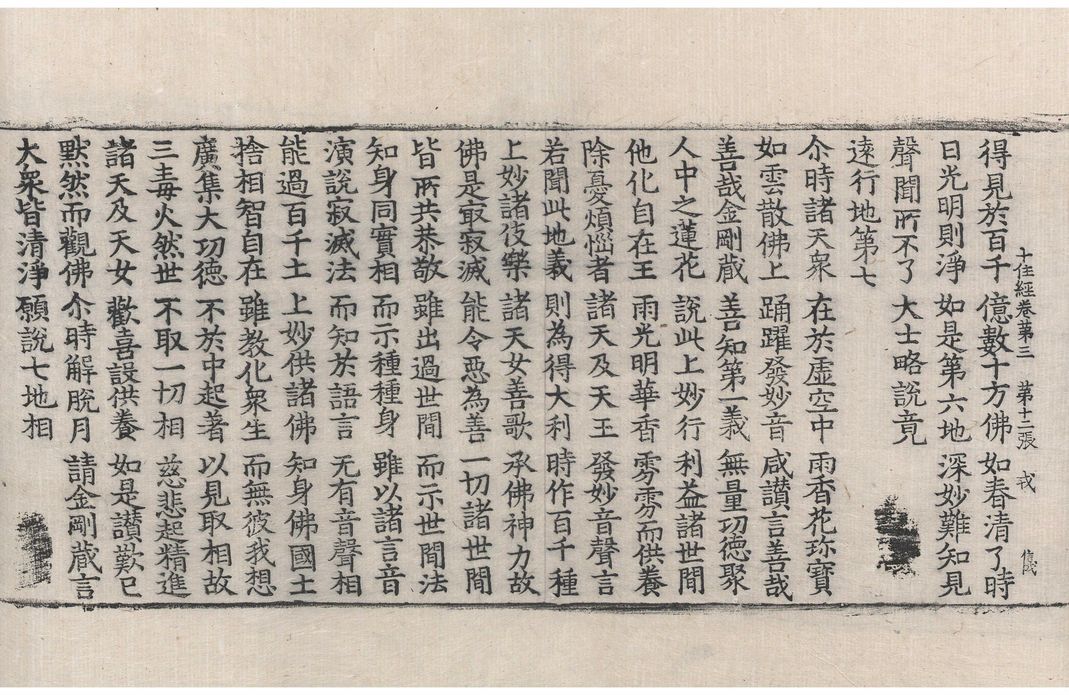 十住經卷第三 第十三張 戎
得見於百千 億數十方佛 如春清了時
日光明則淨 如是第六地 深妙難知見
聲聞所不了 大士略說竟
遠行地第七
尒時諸天衆 在於虛空中 雨香花珎寶
如雲散佛上 踊躍發妙音 咸讃言善哉
善哉金剛藏 善知第一義 無量功德聚
人中之蓮花 說此上妙行 利益諸世間
他化自在王 雨光明華香 雰雰而供養
除憂煩惱者 諸天及天王 發妙音聲言
若聞此地義 則為得大利 時作百千種
上妙諸伎樂 諸天女善歌 承佛神力故
佛是㝡寂滅 能令惡為善 一切諸世間
皆所共恭敬 雖出過世間 而示世間法
知身同實相 而示種種身 雖以諸言音
演說寂滅法 而知於語言 无有音聲相
能過百千土 上妙供諸佛 知身佛國土
捨相智自在 雖教化衆生 而無彼我想
廣集大功德 不於中起著 以見取相故
三毒火然世 不取一切相 慈悲起精進
諸天及天女 歡喜設供養 如是讃歎已
默然而觀佛 尒時解脫月 請金剛藏言
大衆皆清淨 願說七地相